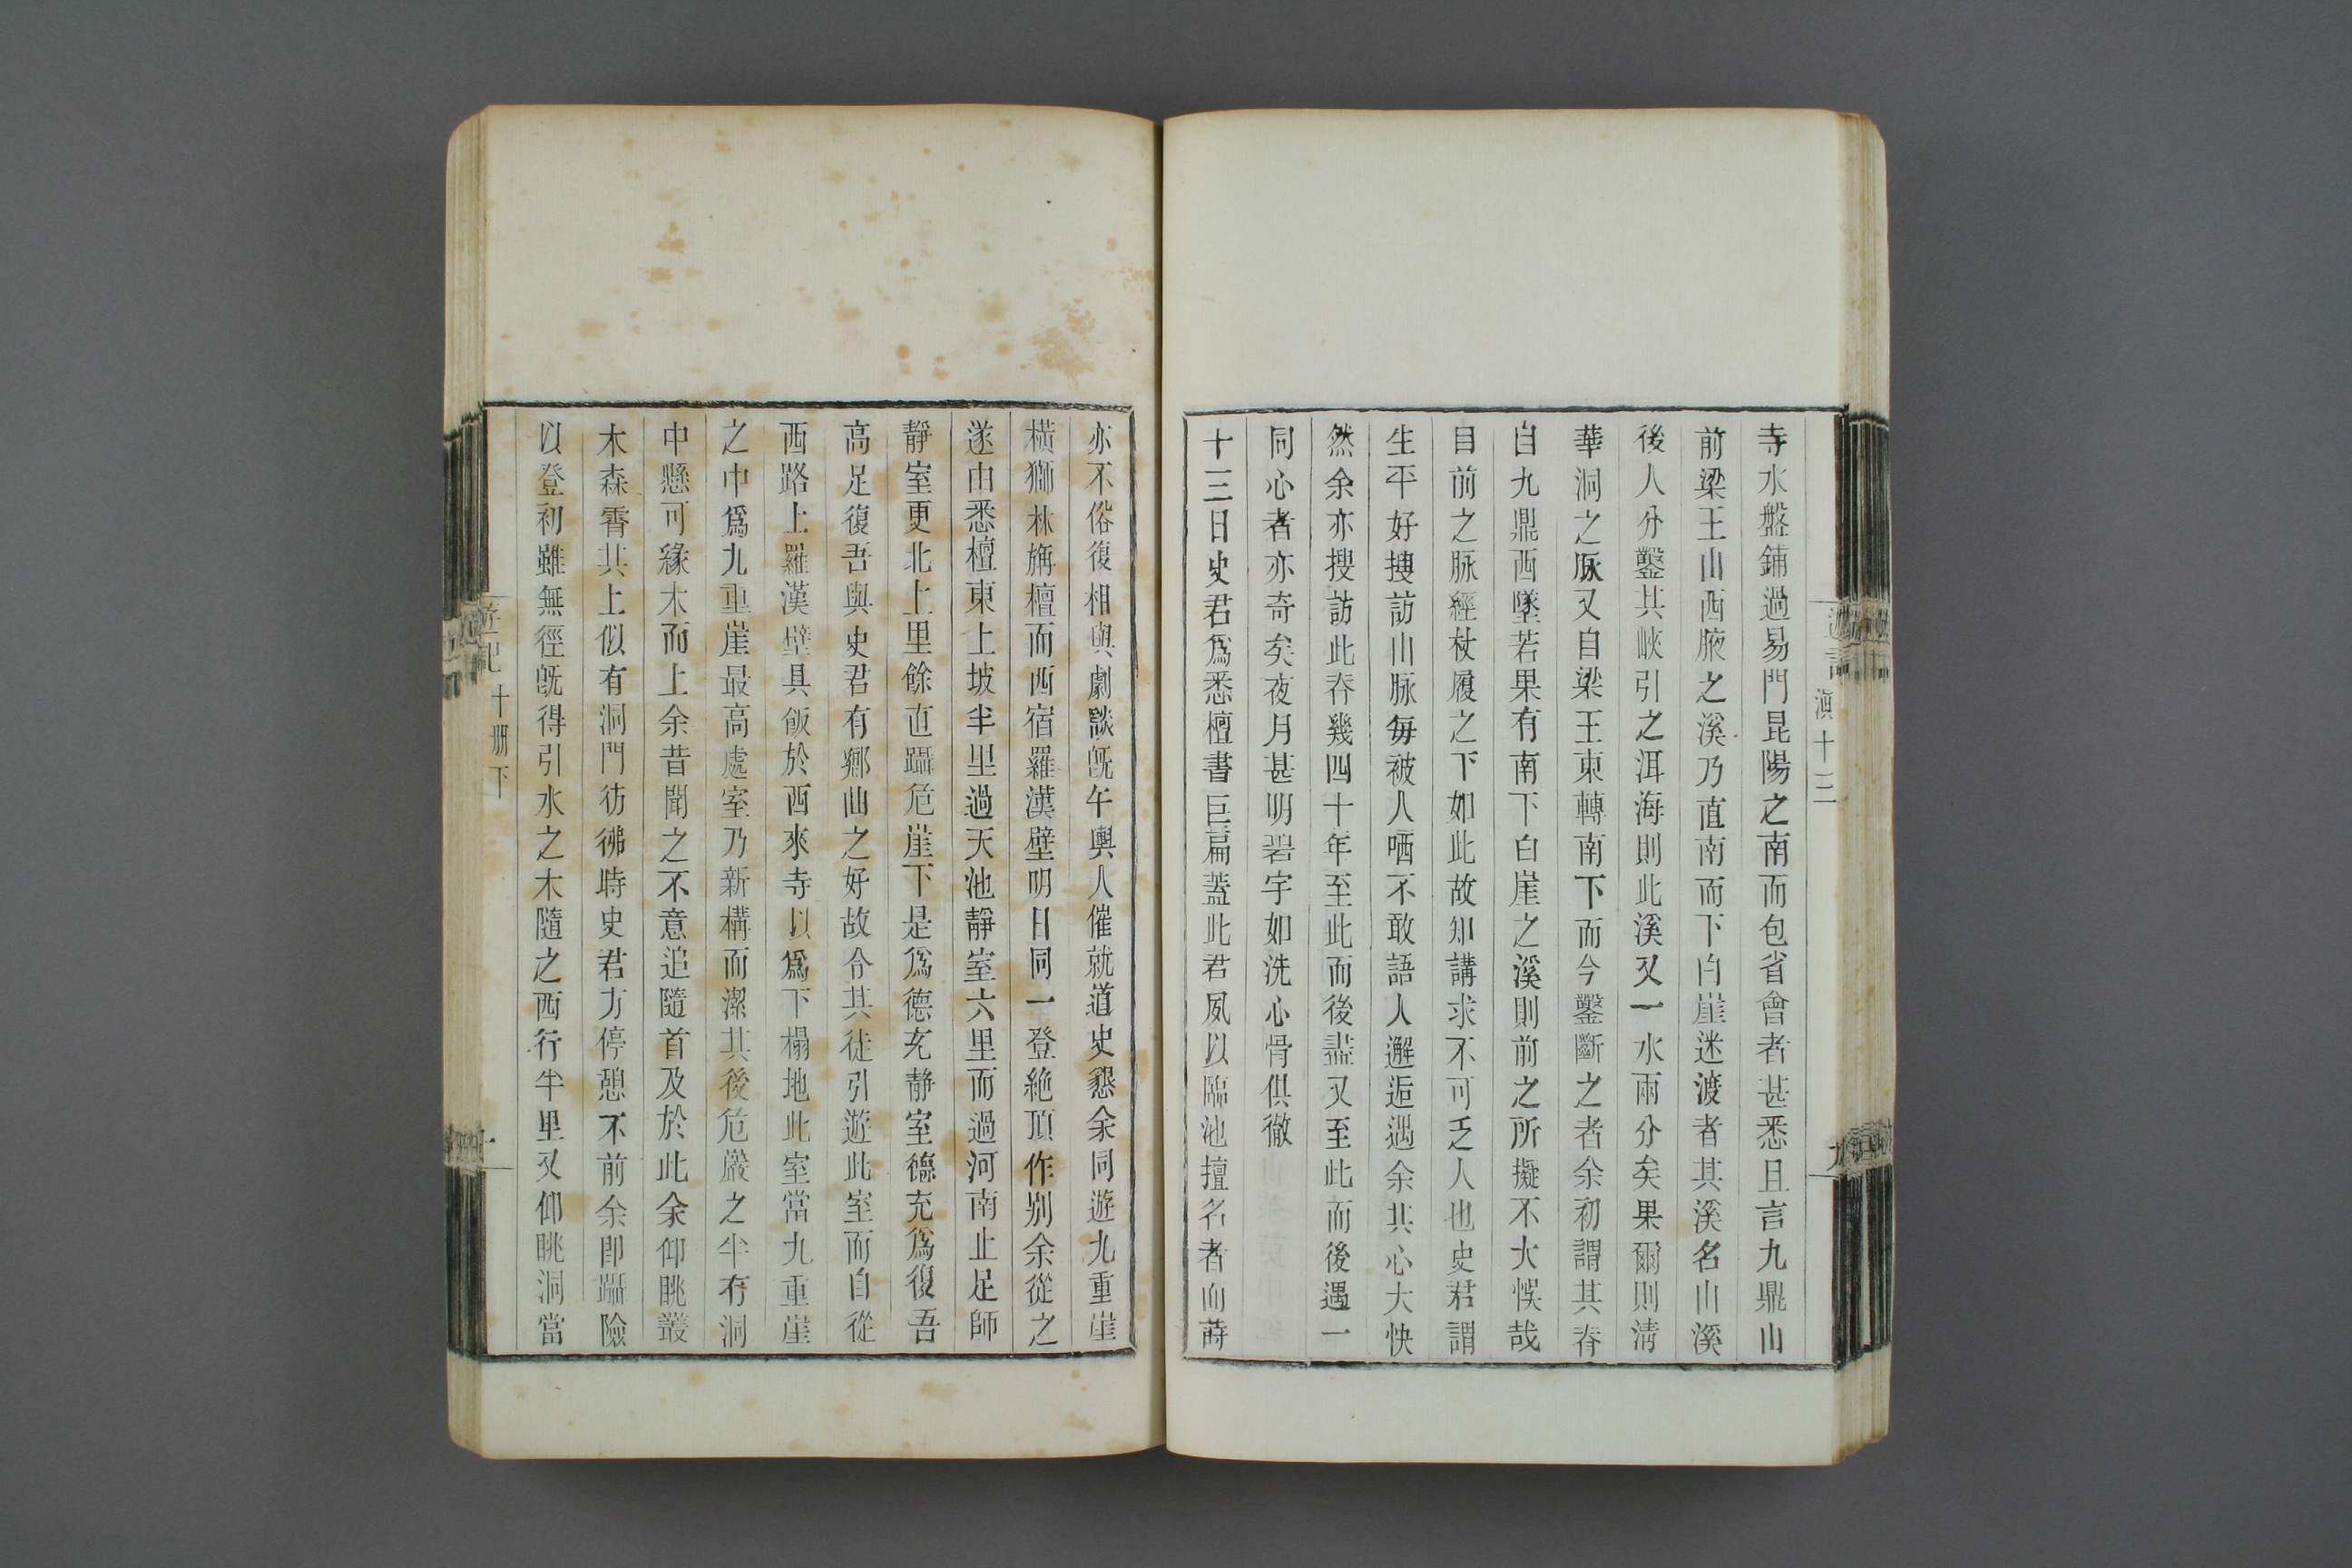 寺水盤鋪過易門昆陽之南而包省會者甚悉且言九鼎山
前梁王山西腋之溪乃直南而下白崖迷渡者其溪名山溪
後人分鑿其峽引之洱海則此溪又一水兩分矣果爾則清
華洞之脉又自梁王東轉南下而今鑿斷之者余初謂其脊
自九鼎西墜若果有南下白崖之溪則前之所擬不大悞哉
目前之脉經杖履之下如此故知講求不可乏人也史君謂
生平好搜訪山脉每被人哂不敢語人邂逅遇余其心大快
然余亦搜訪此脊幾四十年至此而後盡又至此而後遇一
同心者亦奇矣夜月甚明碧宇如洗心骨俱徹
十三日史君爲悉檀書巨篇蓋此君夙以臨池擅名者而蒔
亦不俗復相與劇談旣午輿人催就道史懇余同遊九重崖
橫獅林旃檀而西宿羅漢壁明日同一登絶頂作別余從之
遂由悉檀東上坡半里過天池靜室六里而過河南止足師
靜室更北上里餘直躡危崖下是爲德充靜室德充爲復吾
高足復吾與史君有鄉曲之好故令其徒引遊此室而自從
西路上羅漢壁具飯於西來寺以爲下榻地此室當九重崖
之中爲九重崖最高處室乃新構而潔其後危巖之半有洞
中懸可緣木而上余昔聞之不意追隨首及於此余仰眺叢
木森霄其上似有洞門彷彿時史君方停憩不前余卽躡險
以登初雖無徑旣得引水之木隨之西行半里又仰眺洞當
遊記 滇十三
九
遊記 十册下